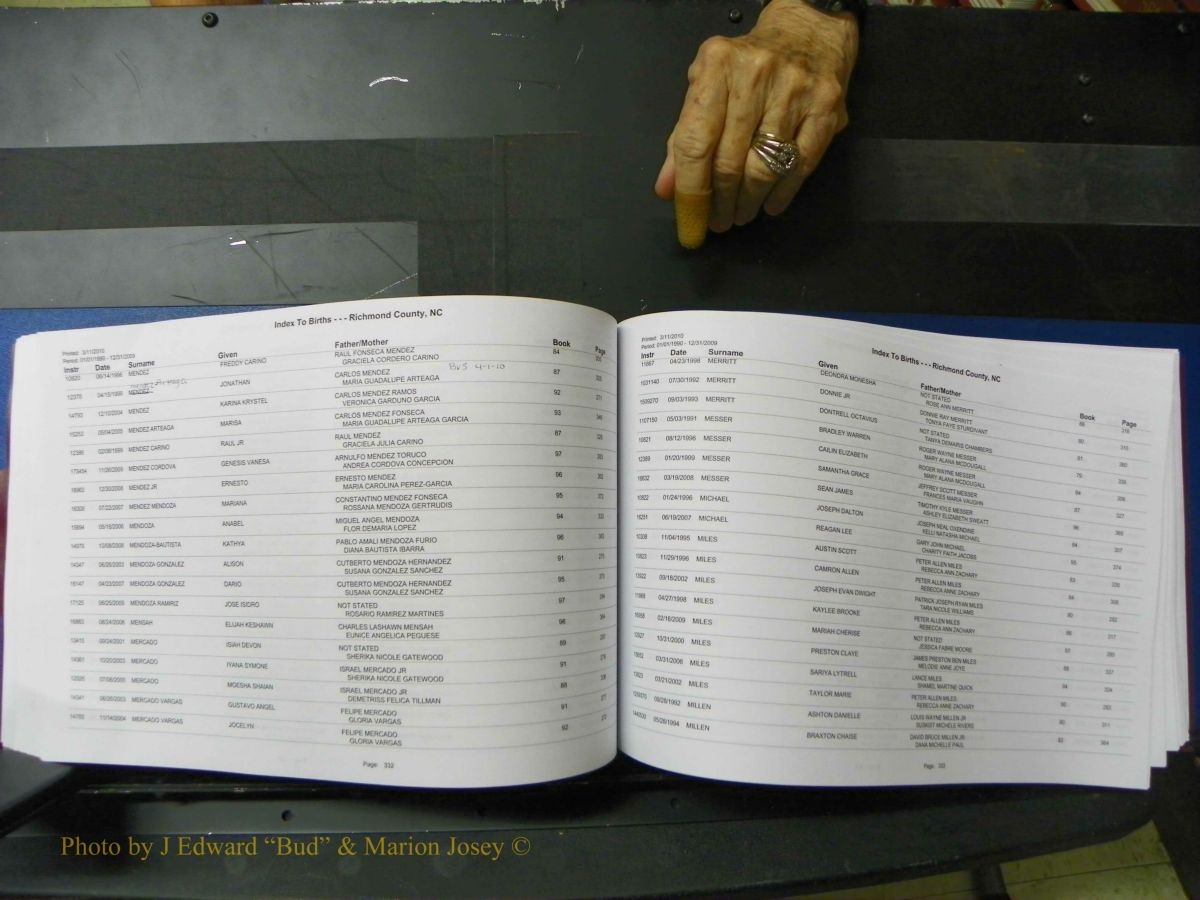 Index To Births - - - Richmond County, NC
Printed: 3/11/2010
Period: 01/01/1990 - 12/31/2009
Instr Date Surname Given Father/Mother Book Page
10820 06/14/1996 MENDEZ FREDDY CARINO RAUL FONSECA MENDEZ 84
GRACIELA CORDERO CARINO
12370 04/15/1999 MENDEZ Mendez Arteaga JONATHAN CARLOS MENDEZ BVS 4-1-10 87
MARIA GUADALUPE ARTEAGA
14793 12/10/2004 MENDEZ KARINA KRYSTEL CARLOS MENDEZ RAMOS 92 271
VERONICA GARDUNO GARCIA
15253 05/04/2005 MENDEZ ARTEAGA MARISA CARLOS MENDEZ FONSECA 93
MARIA GUADALUPE ARTEAGA GARCIA
12386 02/08/1999 MENDEZ CARINO RAUL JR RAUL MENDEZ 87
GRACIELA JULIA CARINO
173454 11/26/2009 MENDEZ CORDOVA GENESIS VANESA ARNULFO MENDEZ TORUCO 97
ANDREA CORDOVA CONCEPCION
16963 12/30/2008 MENDEZ JR ERNESTO ERNESTO MENDEZ 96
MARIA CAROLINA PEREZ-GARCIA
16308 07/22/2007 MENDEZ MENDOZA MARIANA CONSTANTINO MENDEZ FONSECA 95
ROSSANA MENDOZA GERTRUDIS
15694 05/18/2006 MENDOZA ANABEL MIGUEL ANGEL MENDOZA 94
FLOR DEMARIA LOPEZ
14970 10/08/2008 MENDOZA-BAUTISTA KATHYA PABLO AMALI MENDOZA FURIO 96
DIANA BAUTISTA IBARRA
14347 06/26/2003 MENDOZA GONZALEZ ALISON CUTBERTO MENDOZA HERNANDEZ 91
SUSANA GONZALEZ SANCHEZ
16147 04/23/2007 MENDOZA GONZALEZ DARIO CUTBERTO MENDOZA HERNANDEZ 95
SUSANA GONZALEZ SANCHEZ
17125 06/25/2009 MENDOZA RAMIRIZ JOSE ISIDRO NOT STATED 97
ROSARIO RAMIREZ MARTINES
16863 08/24/2008 MENSAH ELIJAH KESHAWN CHARLES LASHAWN MENSAH 96
EUNICE ANGELICA PEGUESE
13415 09/24/2001 MERCADO ISIAH DEVON NOT STATED 89
SHERIKA NICOLE GATEWOOD
14361 10/20/2003 MERCADO IYANA SYMONE ISRAEL MERCADO JR 91
SHERIKA NICOLE GATEWOOD
12926 07/06/2000 MERCADO MOESHA SHAIAN ISRAEL MERCADO JR 88
DEMETRISS FELICA TILLMAN
14341 06/26/2003 MERCADO VARGAS GUSTAVO ANGEL FELIPE MERCADO 91
GLORIA VARGAS
14793 11/14/2004 MERCADO VARGAS JOCELYN FELIPE MERCADO 92 272
GLORIA VARGAS
Page: 332
Index To Births - - - Richmond County, NC
Printed: 3/11/2010
Period: 01/01/1990 - 12/31/2009
Instr Date Surname Given Father/Mother Book Page
11867 04/23/1998 MERRITT DEONDRA MONESHA NOT STATED 86
ROSE ANN MERRITT
1031140 07/30/1992 MERRITT DONNIE JR DONNIE RAY MERRITT 80 310
TONYA FAYE STURDIVANT
1509270 09/03/1993 MERRITT DONTRELL OCTAVIUS NOT STATED 81 360
TANYA DEMARIS CHAMBERS
1107150 05/03/1991 MESSER BRADLEY WARREN ROGER WAYNE MESSER 79
MARY ALANA MCDOUGALL
10821 08/12/1996 MESSER CAILIN ELIZABETH ROGER WAYNE MESSER 84
MARY ALANA MCDOUGALL
12369 01/20/1999 MESSER SAMANTHA GRACE JEFFREY SCOTT MESSER 87 327
FRANCES MARIA VAUGHN
16632 03/19/2008 MESSER SEAN JAMES TIMOTHY KYLE MESSER 96
ASHLEY ELIZABETH SWEATT
10822 01/24/1996 MICHAEL JOSEPH DALTON JOSEPH NEAL OXENDINE 84 307
KELLI NATASHA MICHAEL
16251 06/19/2007 MICHAEL REAGAN LEE GARY JOHN MICHAEL 95 374
CHARITY FAITH JACOBS
10308 11/04/1995 MILES AUSTIN SCOTT PETER ALLEN MILES 83
REBECCA ANN ZACHARY
10823 11/29/1996 MILES CAMRON ALLEN PETER ALLEN MILES 84
REBECCA ANNE ZACHARY
13922 09/18/2002 MILES JOSEPH EVAN DWIGHT PATRICK JOSEPH RYAN MILES 90
TARA NICOLE WILLIAMS
11868 04/27/1998 MILES KAYLEE BROOKE PETER ALLEN MILES 86 317
REBECCA ANN ZACHARY
02/16/2009 MILES MARIAH CHERISE NOT STATED 97
JESSICA FABRE MOORE
12927 10/31/2000 MILES PRESTON CLAYE JAMES PRESTON BEN MILES 88 337
MELODIE ANNE JOYE
03/31/2006 MILES SARIYA LYTRELL LANCE MILES 94
SHAMEL MARTINE QUICK
03/21/2002 MILES TAYLOR MARIE PETER ALLEN MILES 90
REBECCA ANNE ZACHARY
09/28/1992 MILLEN ASHTON DANIELLE LOUIS WAYNE MILLEN JR 80 311
MICHELE RIVERS
05/26/1994 MILLEN BRAXTON CHAISE DAVID BRUCE MILLEN JR 82 384
DANA MICHELLE PAUL
Page:
Photo by J Edward “Bud” & Marion Josey ©